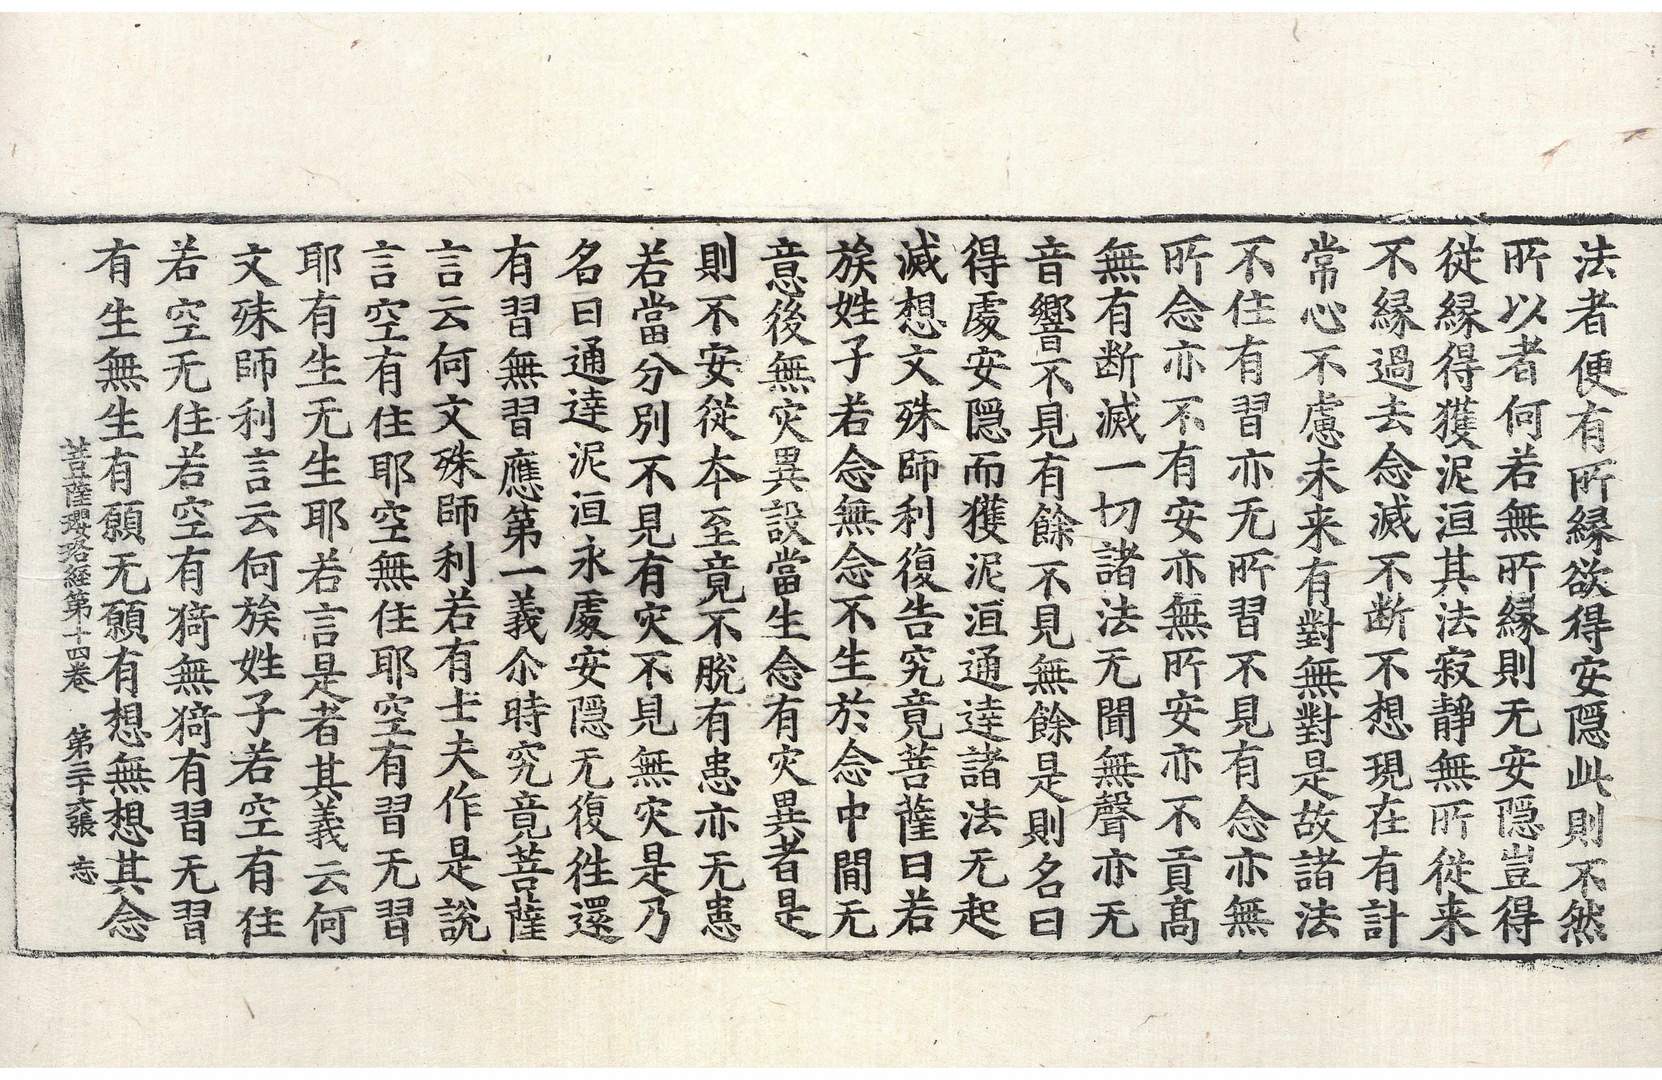 法者便有所緣欲得安隱此則不然
所以者何若無所緣則无安隱豈得
從緣得獲泥洹其法寂靜無所從来
不緣過去念滅不斷不想現在有計
常心不慮未来有對無對是故諸法
不住有習亦无所習不見有念亦無
所念亦不有安亦無所安亦不貢高
無有断滅一切諸法无聞無聲亦无
音響不見有餘不見無餘是則名曰
得處安隱而獲泥洹通達諸法无起
滅想文殊師利復告究竟菩薩曰若
族姓子若念無念不生於念中間无
意後無灾異設當生念有灾異者是
則不安從本至竟不脫有恚亦无恚
若當分別不見有灾不見無灾是乃
名曰通達泥洹永處安隱无復往還
有習無習應第一義尒時究竟菩薩
言云何文殊師利若有士夫作是說
言空有住耶空無住耶空有習无習
耶有生无生耶若言是者其義云何
文殊師利言云何族姓子若空有住
若空无住若空有猗無猗有習无習
有生無生有願无願有想無想其念
菩薩瓔珞經第十四卷　第二十六張　忘